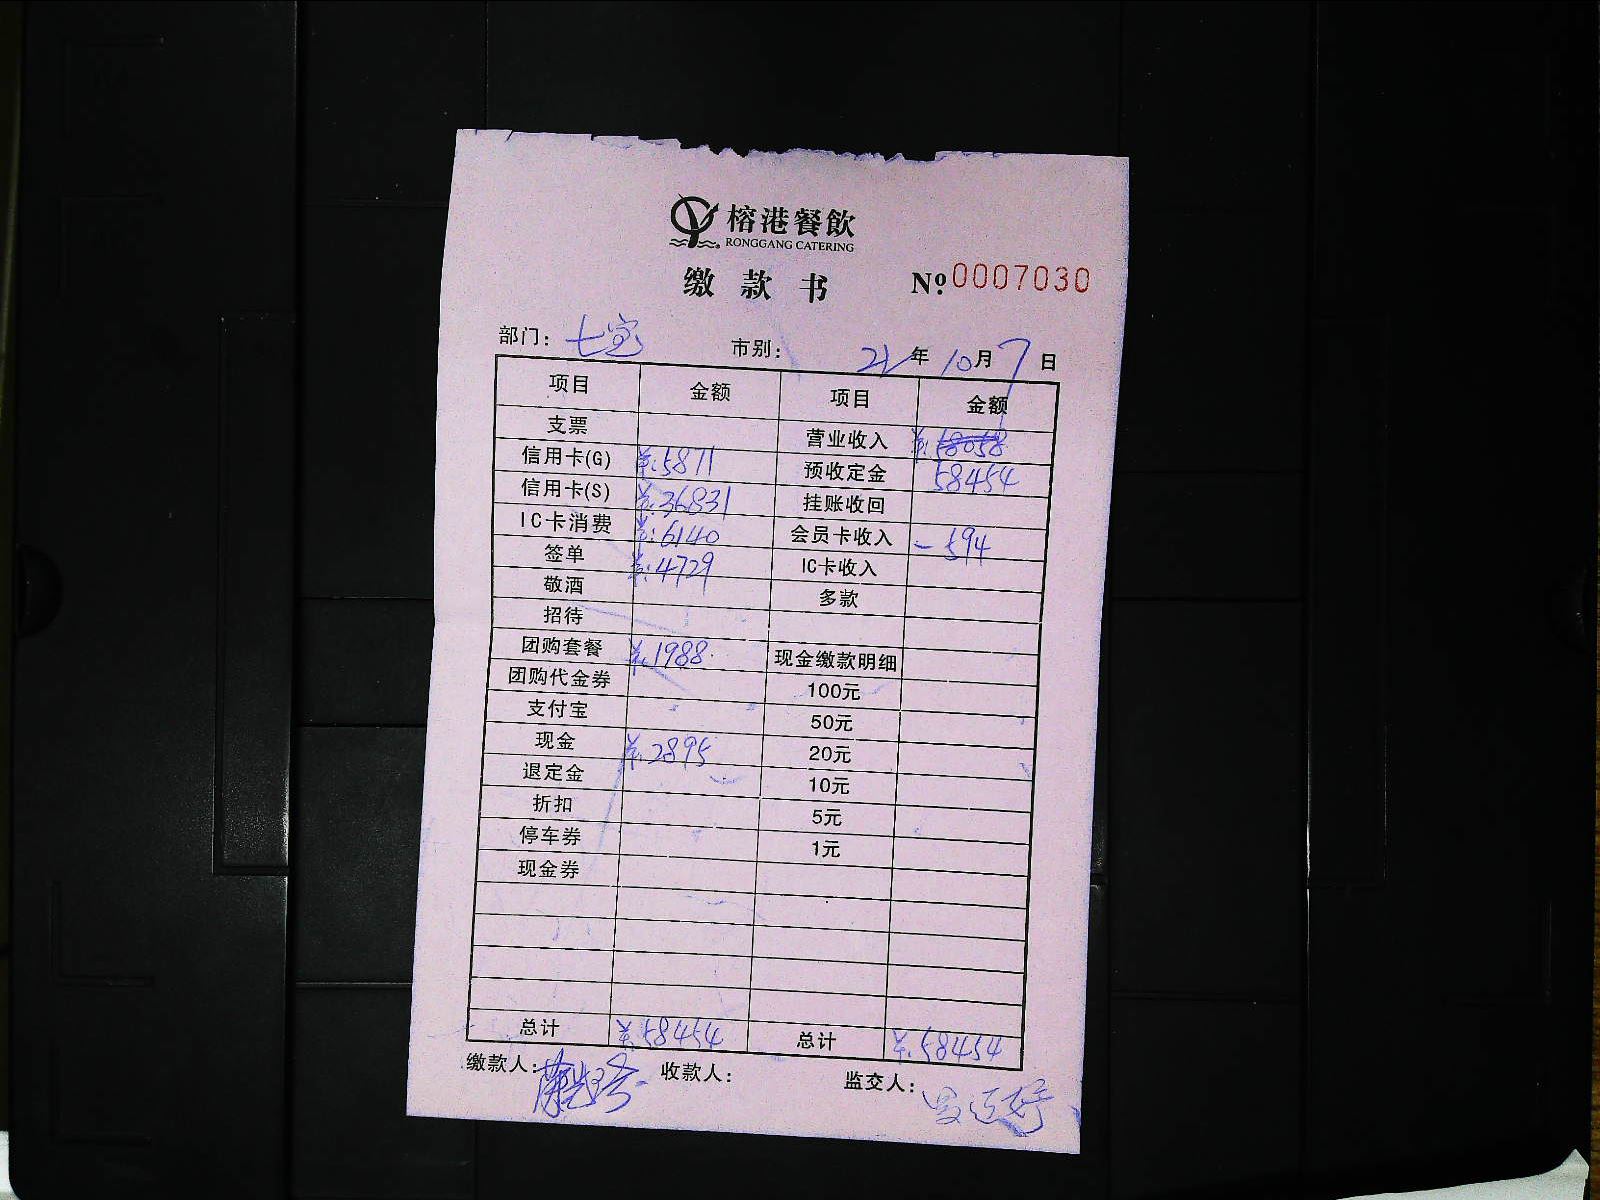 榕港餐飲
RONGGANG CATERING
缴款书 Nº 0007030
部门: 七宝 市别: 21年10月7日
项目 金额 项目 金额
支票 营业收入 ¥:58058
信用卡(G) ¥:5871 预收定金 58454
信用卡(S) ¥:36831 挂账收回
IC卡消费 ¥:6140 会员卡收入 -594
签单 ¥:4729 IC卡收入
敬酒 多款
招待
团购套餐 ¥:1988 现金缴款明细
团购代金券 100元
支付宝 50元
现金 ¥:2895 20元
退定金 10元
折扣 5元
停车券 1元
现金券
总计 ¥:58454 总计 ¥:58454
缴款人: 收款人: 监交人: